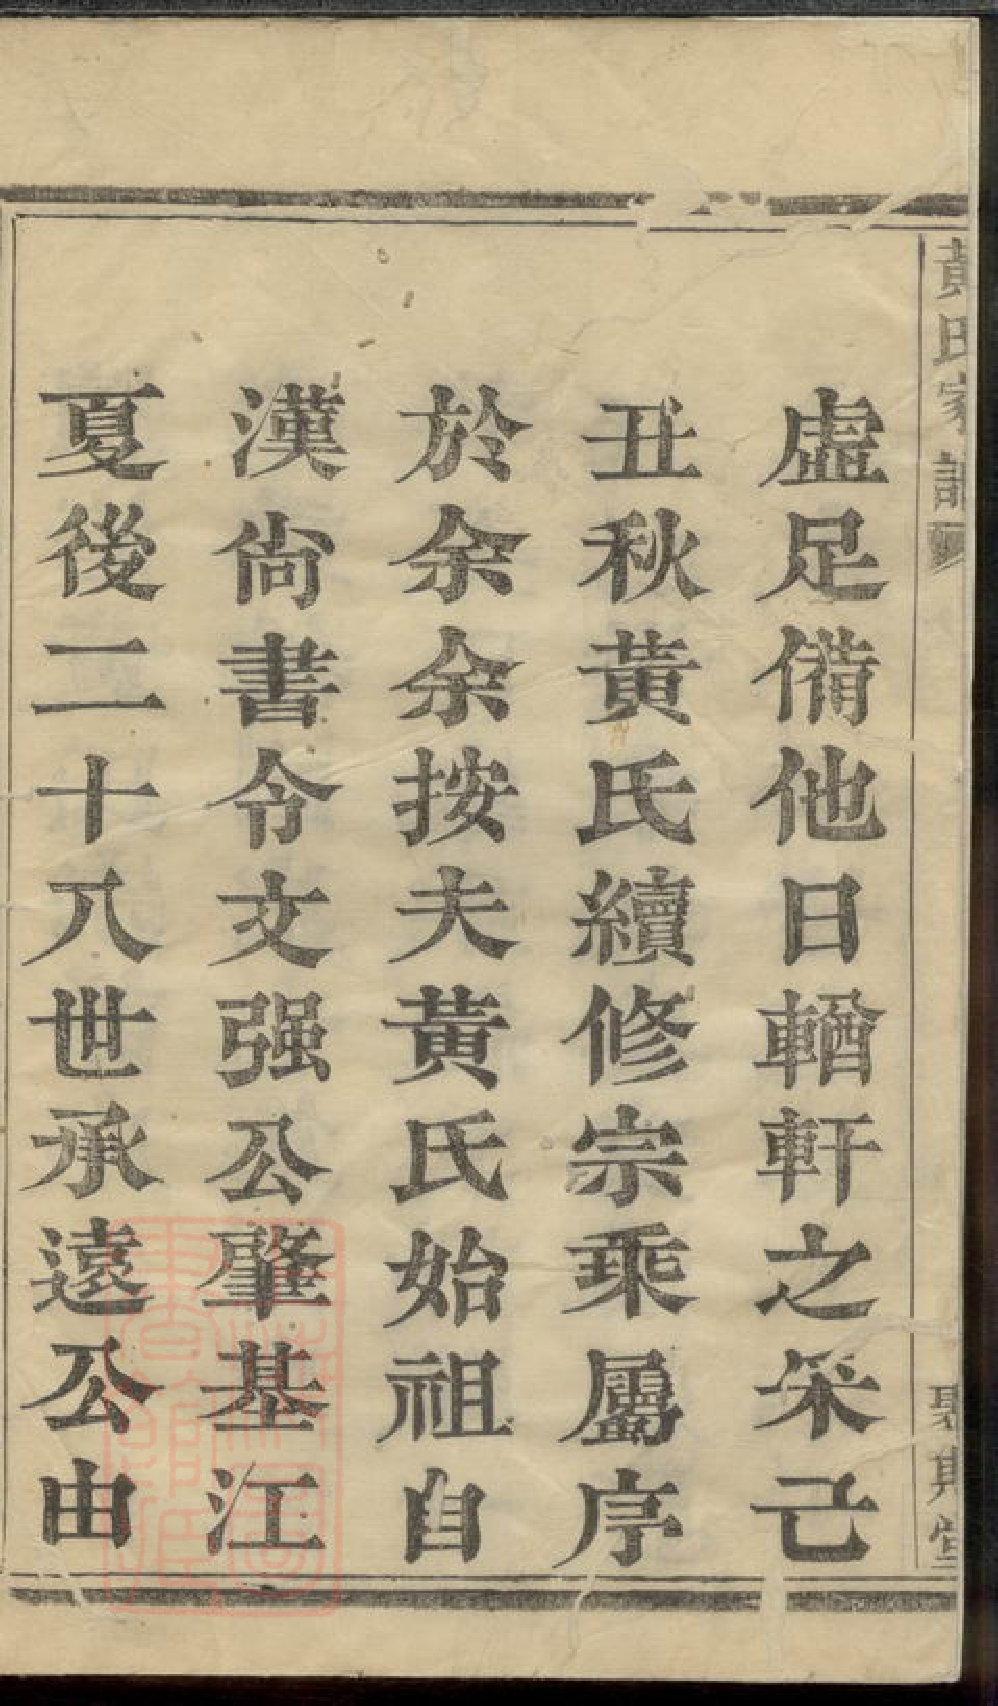 黃氏家譜
虛足備他日輶軒之采己
丑秋黃氏續修宗乘屬序
於余余按夫黃氏始祖自
漢尚書令文强公肇基江
夏後二十八世承遠公由